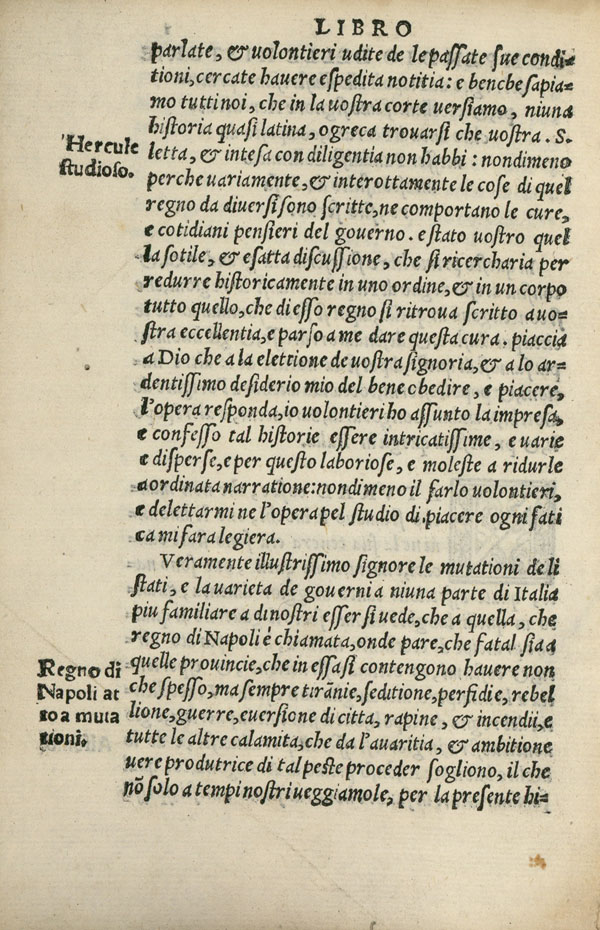 LIBRO
parlate, & uolontieri udite de le passate sue condi-
tioni, cercate hauere espedita notitia: e benche sapia-
mo tutti noi, che in la uostra corte uersiamo, niuna
historia quasi latina, o greca trouarsi che uostra. S.
Hercule
studioso.
letta, & intesa con diligentia non habbi: nondimeno
perche uariamente, & interottamente le cose di quel
regno da diuersi sono scritte, ne comportano le cure,
e cotidiani pensieri del gouerno. e stato uostro quel
la sotile, & esatta discussione, che si ricercharia per
redurre historicamente in uno ordine, & in un corpo
tutto quello, che di esso regno si ritroua scritto a uo-
stra eccellentia, e parso a me dare questa cura. piaccia
a Dio che a la elettione de uostra signoria, & a lo ar-
dentissimo desiderio mio del bene obedire, e piacere,
l'opera responda, io uolontieri ho assunto la impresa,
e confesso tal historie essere intricatissime, e uarie
e disperse, e per questo laboriose, e moleste a ridurle
a ordinata narratione: nondimeno il farlo uolontieri,
e delettarmi ne l'opera pel studio di piacere ogni fati
ca mi fara legiera.
Veramente illustrissimo signore le mutationi de li
stati, e la uarieta de gouerni a niuna parte di Italia
piu familiare a di nostri esser si uede, che a quella, che
regno di Napoli è chiamata, onde pare, che fatal sia a
Regno di
Napoli at
to a muta
tioni.
quelle prouincie, che in essa si contengono hauere non
che spesso, ma sempre tirãnie, seditione, perfidie, rebel
lione, guerre, euersione di citta, rapine, & incendii, e
tutte le altre calamita, che da l'auaritia, & ambitione
uere produtrice di tal peste proceder sogliono, il che
nõ solo a tempi nostri ueggiamole, per la presente hi-